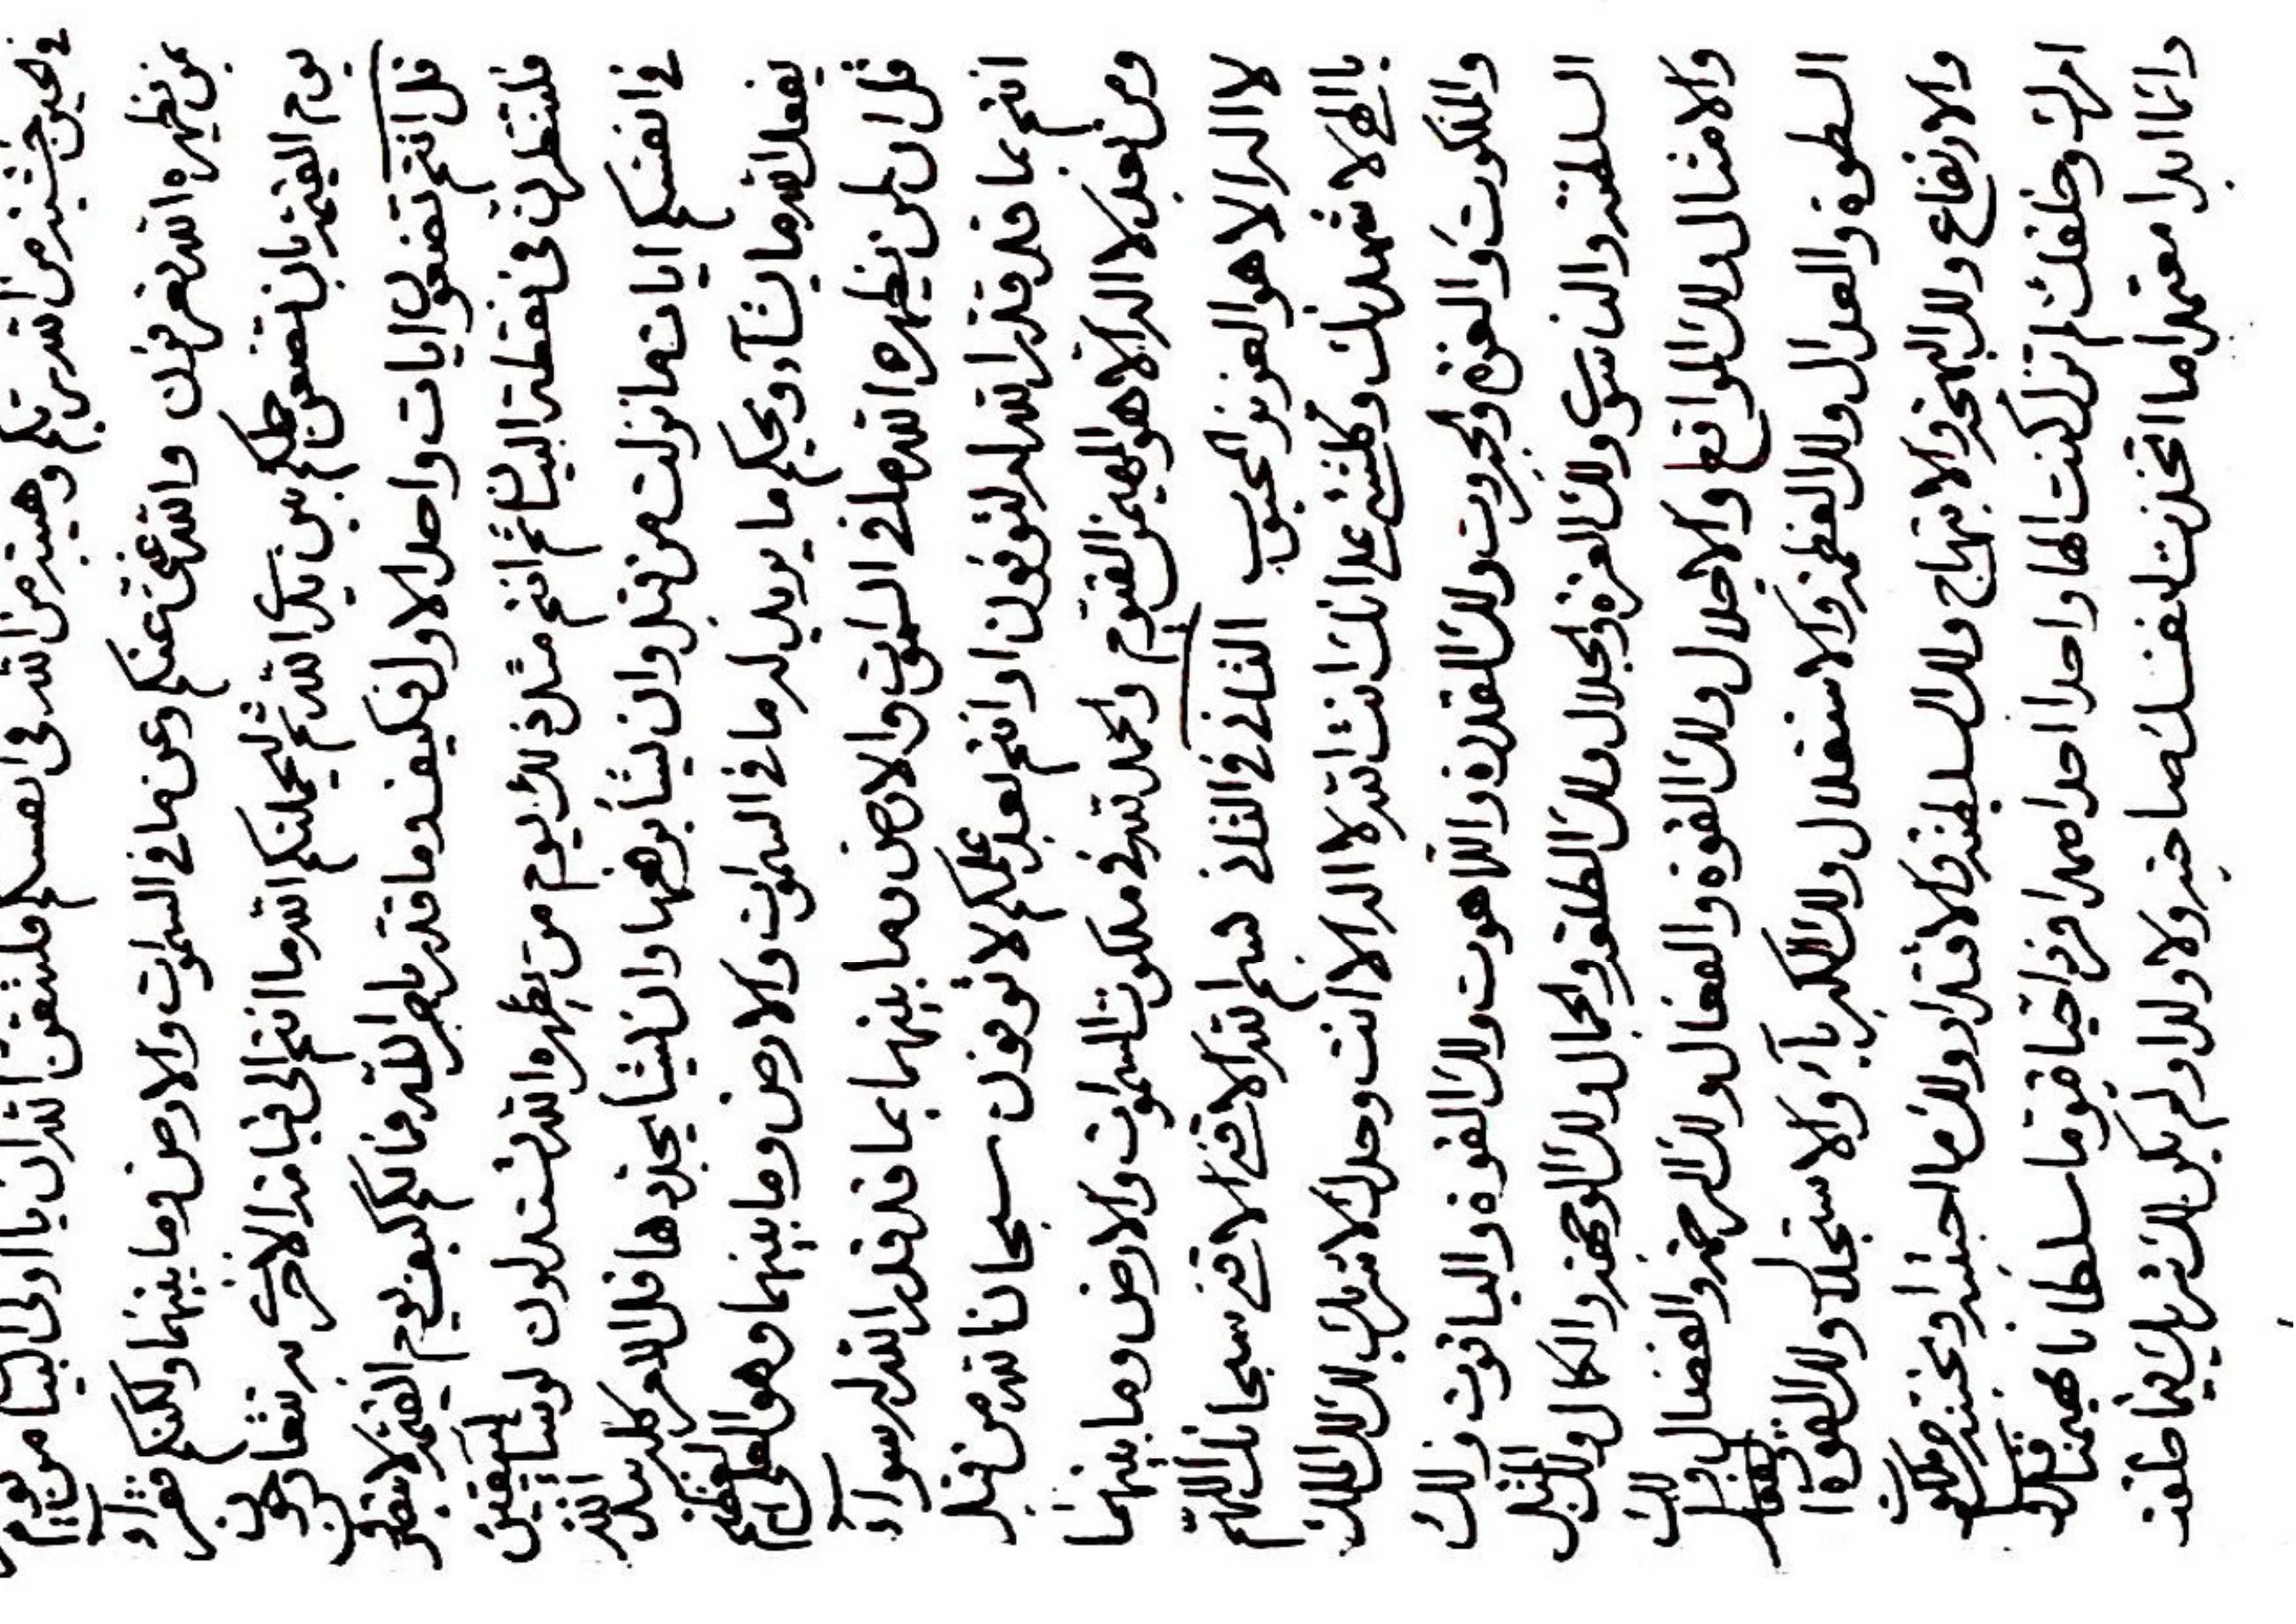 في حين خشية من الله ربكم وهيبة من الله في انفسكم فلتتقن الله ان يا اولى البيان من يوم
من يظهره الله تعرفون والله غنى عنكم وعن ما في السموات والارض وما بينهما ولكنكم فقراء
يوم القيمة بان تقضين حظكم بين يدى الله ثم ليجعلنكم الله ما انتم الى قيامة الاخرى به تتعارجون
قل انتم تقضون ايات واحد الاول كيف قد ما قدر بامر الله فما لكم كيف يوم القيمة لا تنظرون
فلتنظرن في نقطة البيان ثم انتم مثل ذلك يوم من يظهره الله تستدلون لو يشاء ليبقين
في انفسكم ايات ما نزلت من قبل وان يشأ يرفعها وان يشأ يجددها قل الامر كله بيد الله
يفعل الله ما يشآء ويحكم ما يريد له ما في السموات والارض وما بينهما وهو العلى العظيم
قل ان لمن يظهره الله ملك السموات والارض وما بينهما بما قد قدر الله له سواء
انتم بما قد قدر الله له لتوقنون او انتم بعد علمكم لا توقنون سبحان الله من قبل
ومن بعد لا اله الا هو المهيمن القيوم والحمد لله في ملكوت السموات والارض وما بينهما
لا اله الا هو العزيز المحبوب الثاني في الثاني بسم الله الاقدم الاقدم سبحانك اللهم
يا الهي لاشهدنك وكلشئ على انك انت الله لا اله الا انت وحدك لا شريك لك لك الملك
والملكوت ولك العز والجبروت ولك القدرة واللاهوت ولك القوة والياقوت ولك
السلطنة والناسوت ولك العزة والجلال ولك الطلعة والجمال ولك الوجهة والكمال ولك المثل
والامثال ولك المواقع والاجلال ولك القوة والفعال ولك الرحمة والفضال ولك
السطوة والعدال ولك العظمة والاستقلال ولك الكبريآء والاستجلال ولك القوة
والارتفاع ولك البهجة والابتهاج ولك السلطنة والاقتدار ولك ما احببته او تحبنه من ملكوت
امرك وخلقك لم تزل كنت الها واحدا احدا صمدا فردا حيا قيوما سلطانا مهيمنا قدوسا
دائما ابدا معتمدا ما اتخذت لنفسك صاحبة ولا ولدا ولم يكن لك شريك فيما خلقت